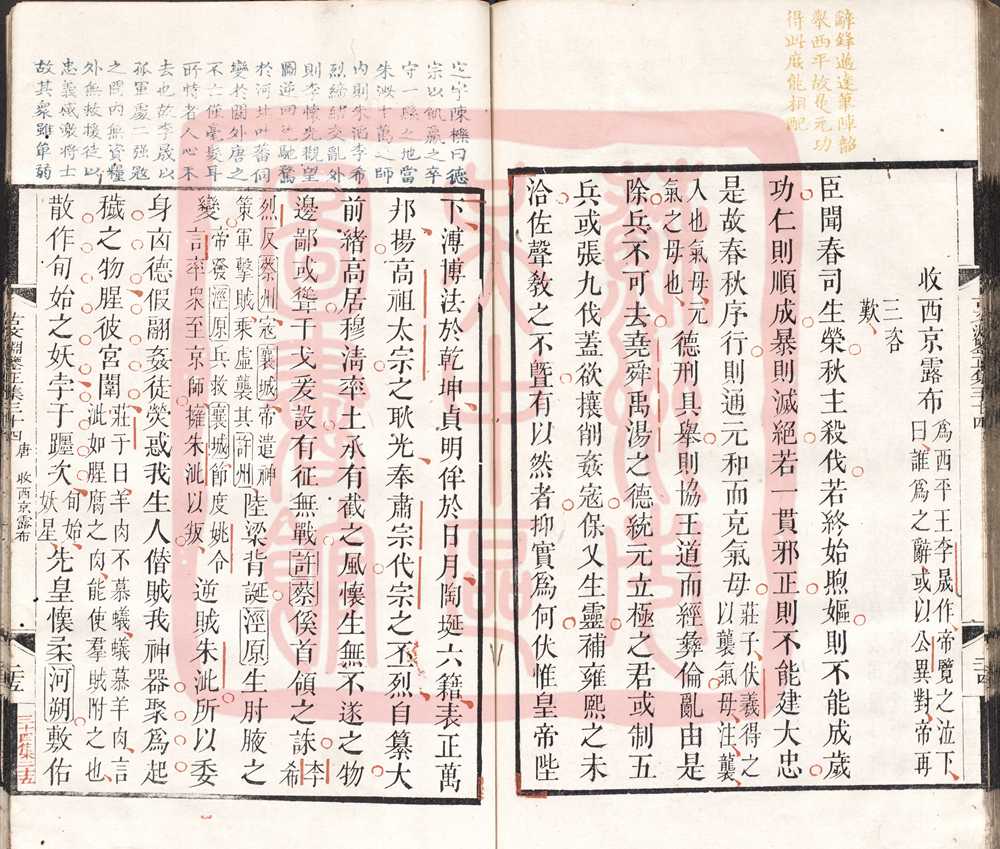 辭鋒遒達筆陣韶
舉西平故兔元功
得此庶能相配
收西京露布為西平王李晟作帝覽之泣下曰誰為之辭或以公異對帝再
三咨
歎
臣聞春司生榮秋主殺伐若終始煦嫗則不能成歲
功仁則順成暴則滅絕若一貫邪正則不能建大忠
是故春秋序行則通元和而克氣母莊子伏羲得之以襲氣母注襲
入也氣母元氣之母也德刑具舉則協王道而經彝倫亂由是
除兵不可去堯舜禹湯之德統元立極之君或制五
兵或張九伐蓋欲攘削姦寇保乂生靈補雍熙之未
洽佐聲敎之不曁有以然者抑實為何伏惟皇帝陛
定宇陳櫟曰德
宗以飢羸之卒
守一縣之地當
朱泚十萬之師
內則朱滔李希
烈締結交亂外
則李懷光觀望
圖逆田馳騖
於河北吐蕃伺
變於關外唐之
不亡僅毫髮耳
所恃者人心不
去也故李晟以
孤軍處二强寇
之間內無資糧
外無救援徒以
忠義感激將士
故其衆雖單弱
下溥博法於乾坤貞明侔於日月陶埏六籍表正萬
邦揚高祖太宗之耿光奉肅宗代宗之丕烈自纂大
前緒高居穆清率土承有截之風懷生無不遂之物
邊鄙或聳干戈爰設有征無戰許蔡俟首領之誅李希
烈反蔡州寇襄城帝遣神策軍擊賊乘虛襲其許州陸梁背誕涇原生肘腋之
變帝發涇原兵救襄城節度姚令言率衆至京師擁朱泚以叛逆賊朱泚所以委
身凶德假翮姦徒熒惑我生人僭賊我神器聚為起
穢之物腥彼宮闈莊子曰羊肉不慕蟻蟻慕羊肉言泚如腥腐之肉能使羣賊附之也
散作旬始之妖孛于躔次旬始妖星先皇懷柔河朔敷佑
古文淵鑒正集三十四
唐 收西京露布
三十四集五